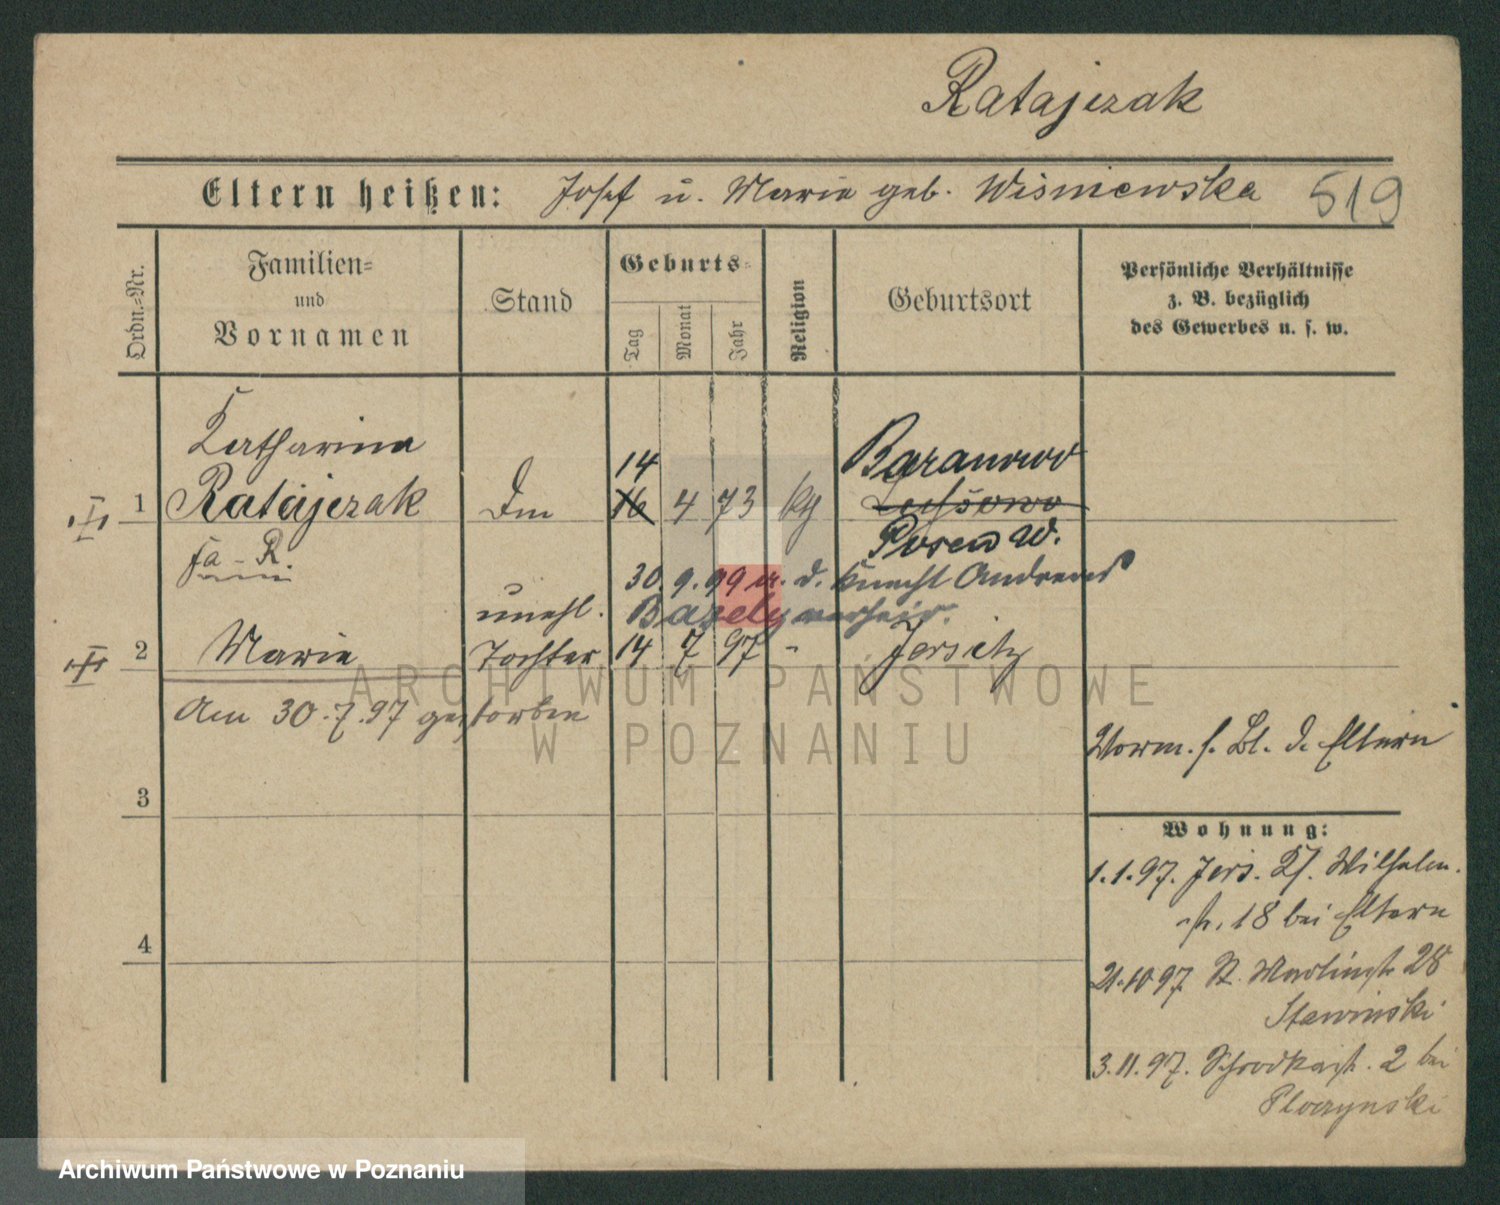 Ratajczak
Eltern heißen: Josef u. Marie geb. Wisniewska 519
Ordn.-Nr.
Familien-
und
Vornamen
Stand
Geburts-
Tag
Monat
Jahr
Religion
Geburtsort
Persönliche Verhältnisse
z. B. bezüglich
des Gewerbes u. s. w.
Katharina
14 Baranowo
I 1 Ratajczak 16 4 73 Lussowo
Posen W.
30. 9. 99 m. d. Knecht Andreas
unehl. Bazely verheir.
II 2 Marie Tochter 14 7 97 - Jersitz
Am 30.7.97 gestorben
Vorm. s. Bl. d. Eltern
3
Wohnung:
1.1.97. Jers. Wilhelm-
str. 18 bei Eltern
4
21.10 97. St. Martinstr 28
Stawinski
3.11.97. Schrodkastr. 2 bei
Ploczynski
ARCHIWUM PAŃSTWOWE
W POZNANIU
Archiwum Państwowe w Poznaniu